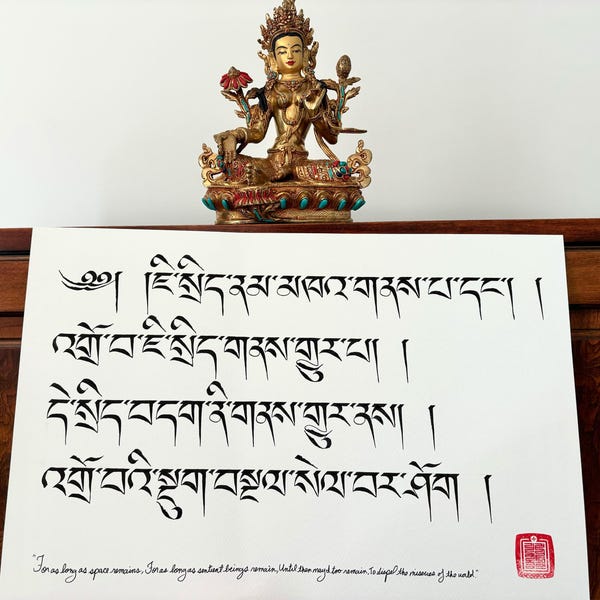 ༄༅། །ཇི་སྲིད་ནམ་མཁའ་གནས་པ་དང་། །
འགྲོ་བ་ཇི་སྲིད་གནས་གྱུར་པ། །
དེ་སྲིད་བདག་ནི་གནས་གྱུར་ནས། །
འགྲོ་བའི་སྡུག་བསྔལ་སེལ་བར་ཤོག །
"For as long as space remains, For as long as sentient beings remain, Until then may I too remain, To dispel the miseries of the world."